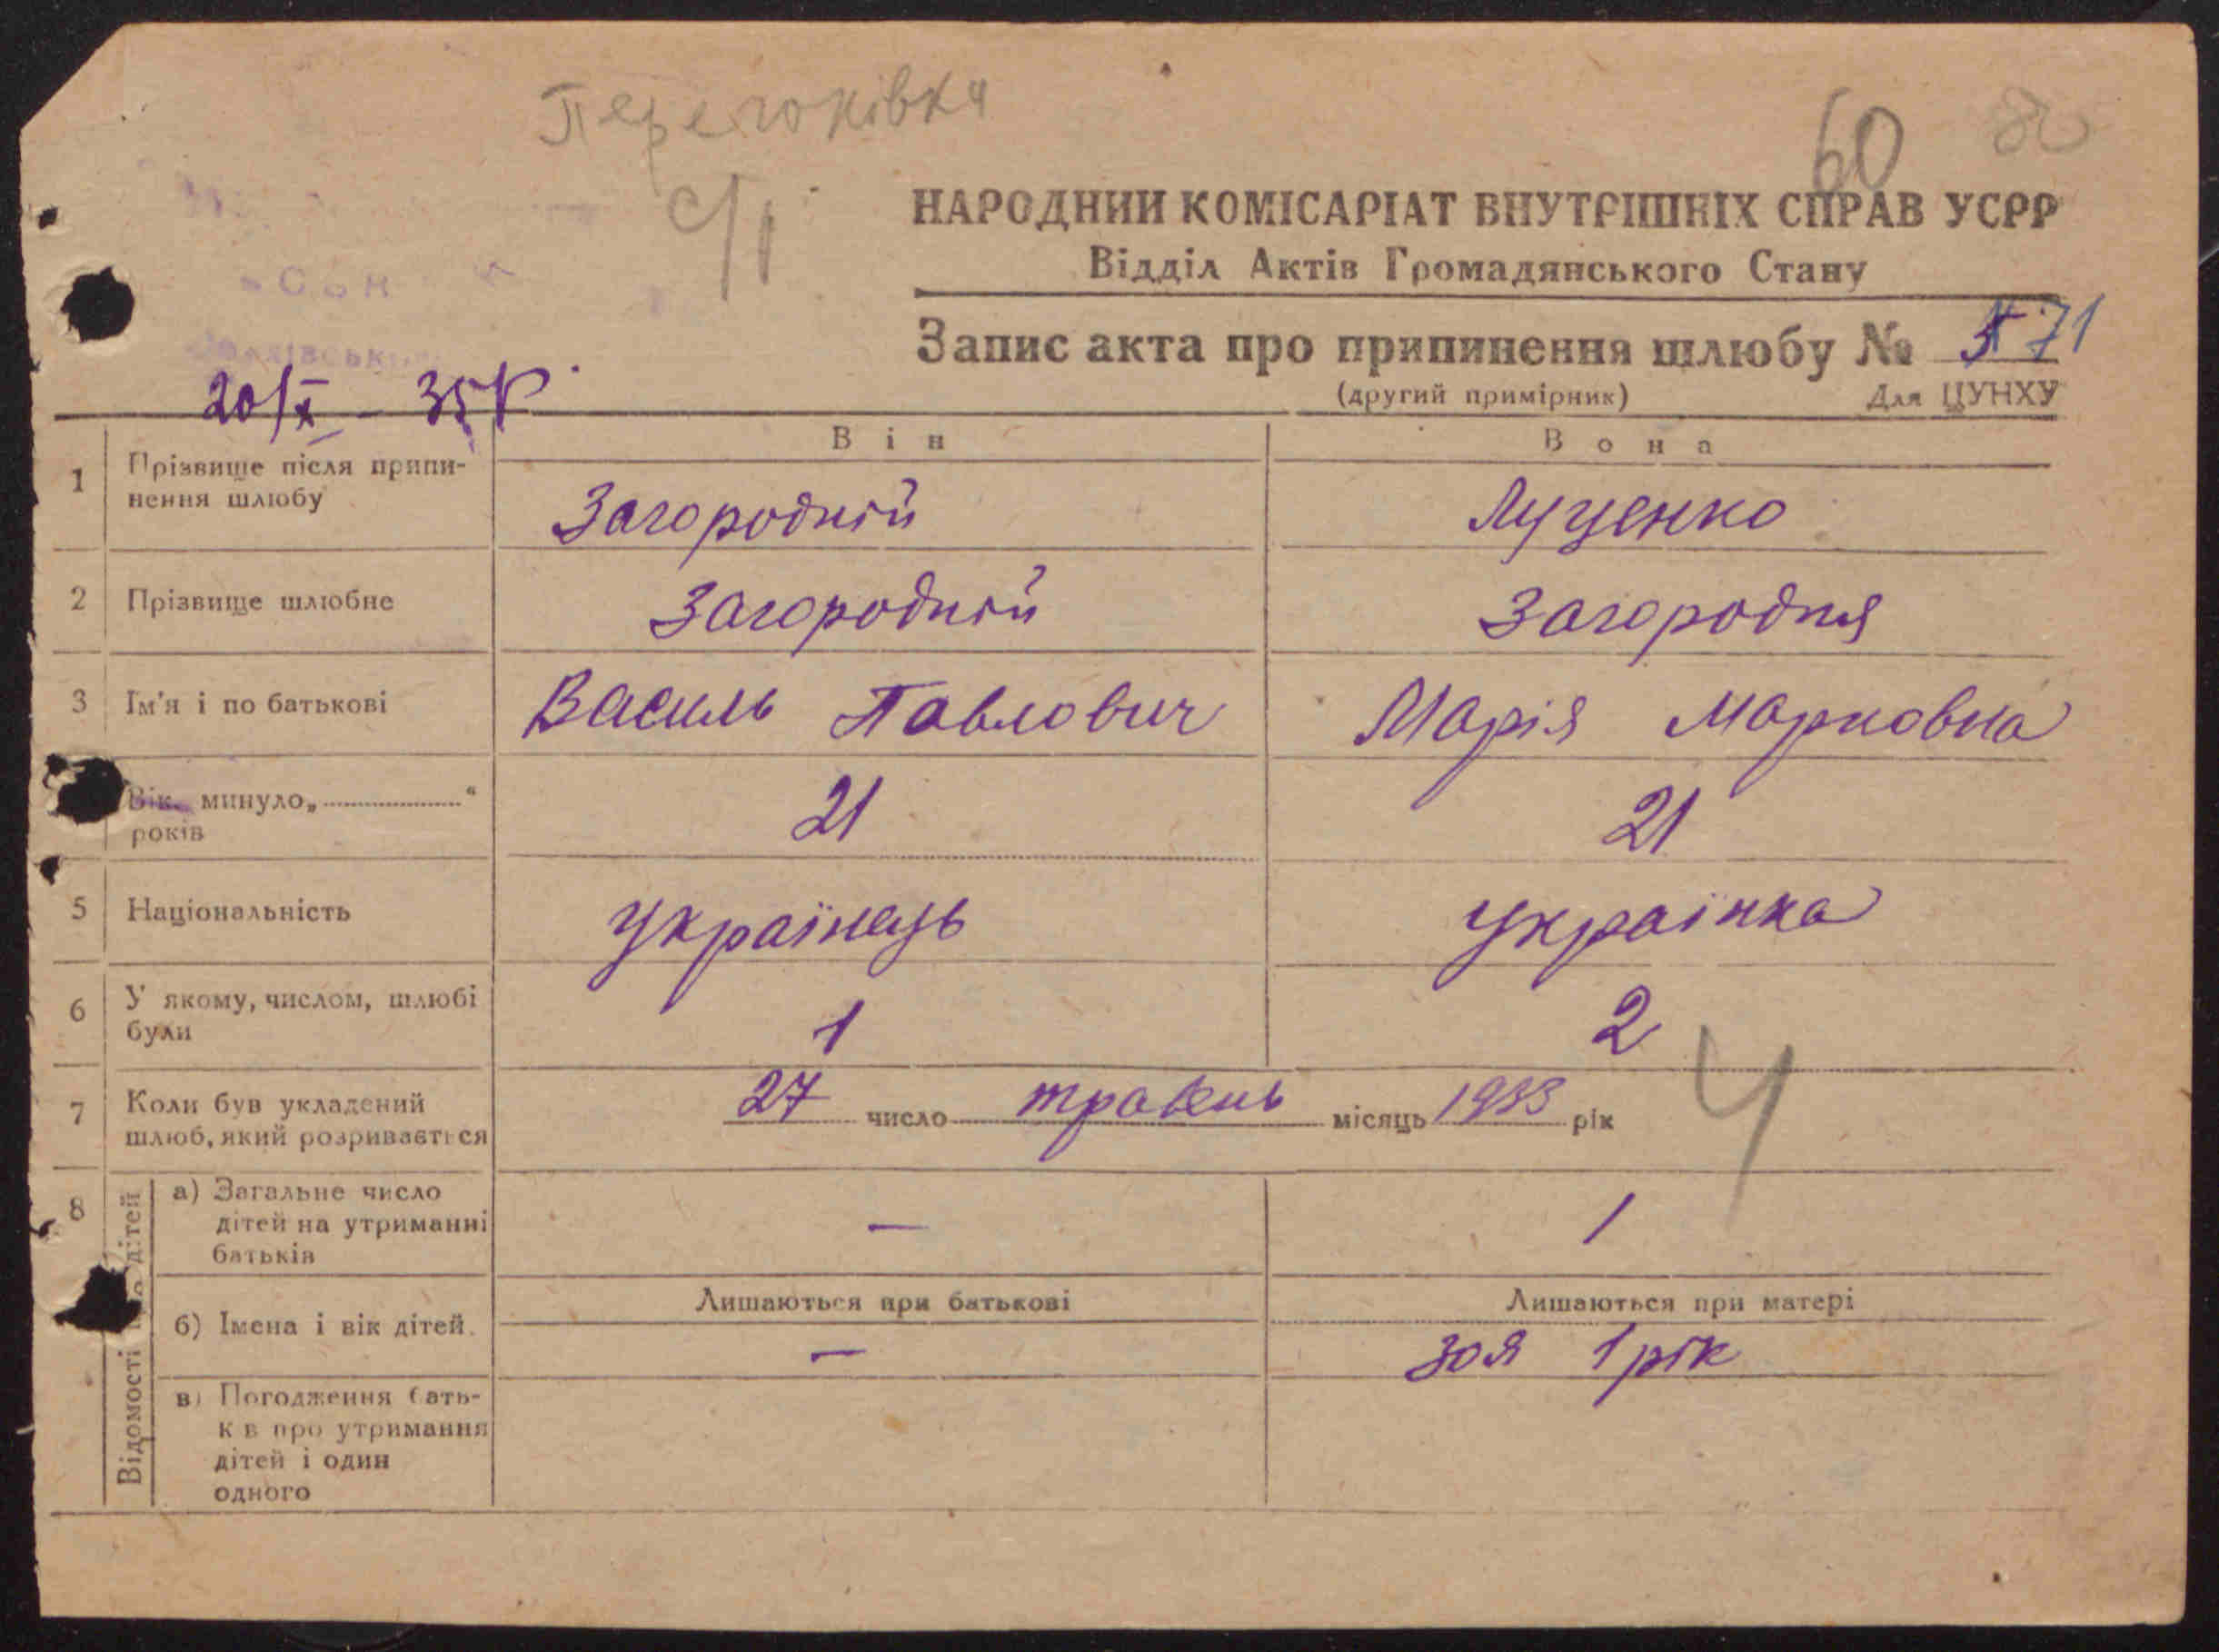 Перегонівка
60 80
с/і
НАРОДНИЙ КОМІСАРІАТ ВНУТРІШНІХ СПРАВ УСРР
Відділ Актів Громадянського Стану
Запис акта про припинення шлюбу № 71
(другий примірник) Для ЦУНХУ
20/X – 35 р.
Він Вона
1 Прізвище після припинення шлюбу Загородній Луценко
2 Прізвище шлюбне Загородній Загородня
3 Ім'я і по батькові Василь Павлович Марія Марковна
Вік минуло „ “ років 21 21
5 Національність українець українка
6 У якому, числом, шлюбі були 1 2
7 Коли був укладений шлюб, який розривається 27 число травень місяць 1933 рік
Ч
8 Відомості дітей
а) Загальне число дітей на утриманні батьків — 1
Лишаються при батькові Лишаються при матері
б) Імена і вік дітей. — Зоя 1 рік
в) Погодження батьк в про утримання дітей і один одного